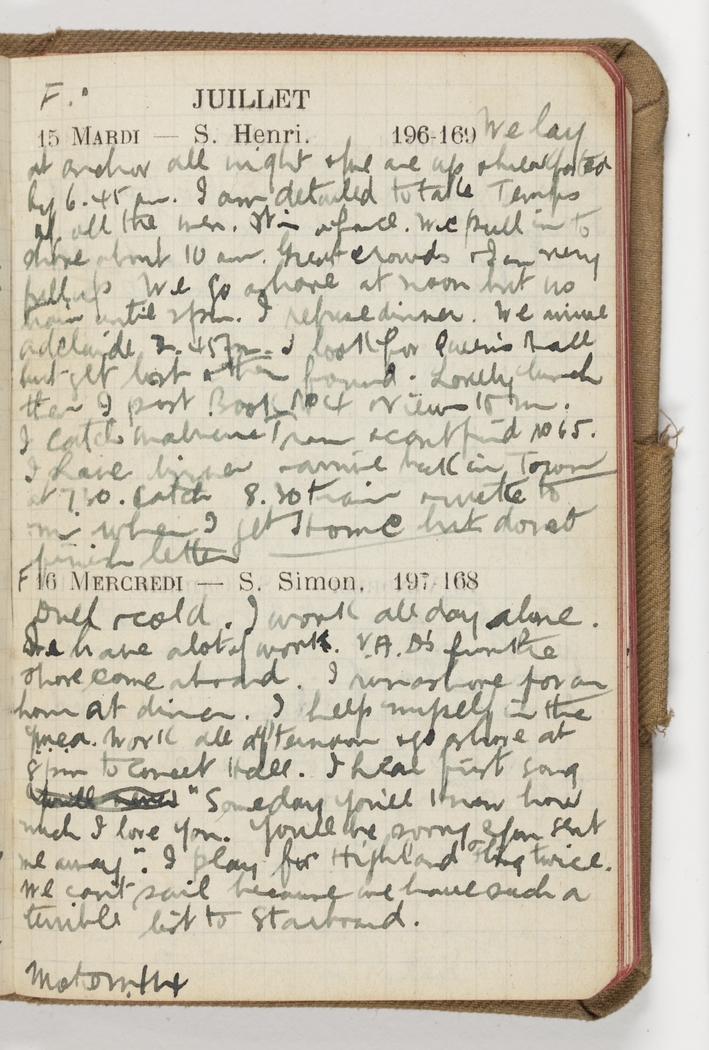 F.
JUILLET
15 MARDI — S. Henri. 196-169 We lay
at anchor all night & we are up & breakfasted
by 6.45 am. I am detailed to take Temps
of all the men. It is a farce. We pull in to
shore about 10 am. Great crowds & I am very
We go ashore at noon but no
train until 2pm. I refuse dinner. We arrive
Adelaide 2.45pm. I look for Queen's Hall
but get lost & then found. Lovely lunch
then I post Book No 4 & views
I catch Tram & cant find No 65.
I have dinner & arrive back in Town
at 7.30. Catch 8.30 train & write to
when I get Home but do not
finish letter
F 16 MERCREDI — S. Simon. 197-168
& cold. I work all day alone.
We have a lot of work. V.A.D's from the
shore come aboard. I run ashore for an
hour at dinner. I help myself in the
work all afternoon & go ashore at
8pm to Concert Hall. I hear first song
"Someday you'll know how
much I love you. You'll be sorry you sent
me away". I play for Highland Fling twice.
We can't sail because we have such a
terrible list to Starboard.